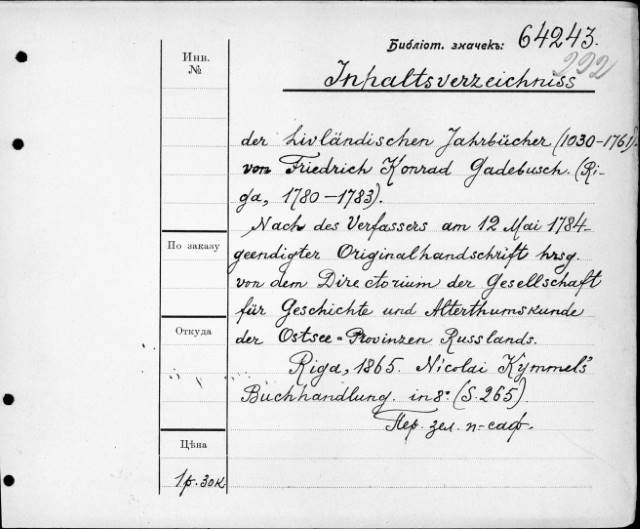 Библіот. значекъ: 64243.
292
Инв.
№
Inhaltsverzeichniss
der Livländischen Jahrbücher (1030-1761)
von Friedrich Konrad Gadebusch. (Ri-
ga, 1780-1783).
Nach des Verfassers am 12 Mai 1784
geendigter Originalhandschrift hrsg.
По заказу
von dem Directorium der Gesellschaft
für Geschichte und Alterthumskunde
Откуда
der Ostsee-Provinzen Russlands.
Riga, 1865. Nicolai Kymmel's
Buchhandlung. in 8º (S. 265).
Пер. зел. п-саф.
Цѣна
1р. 30к